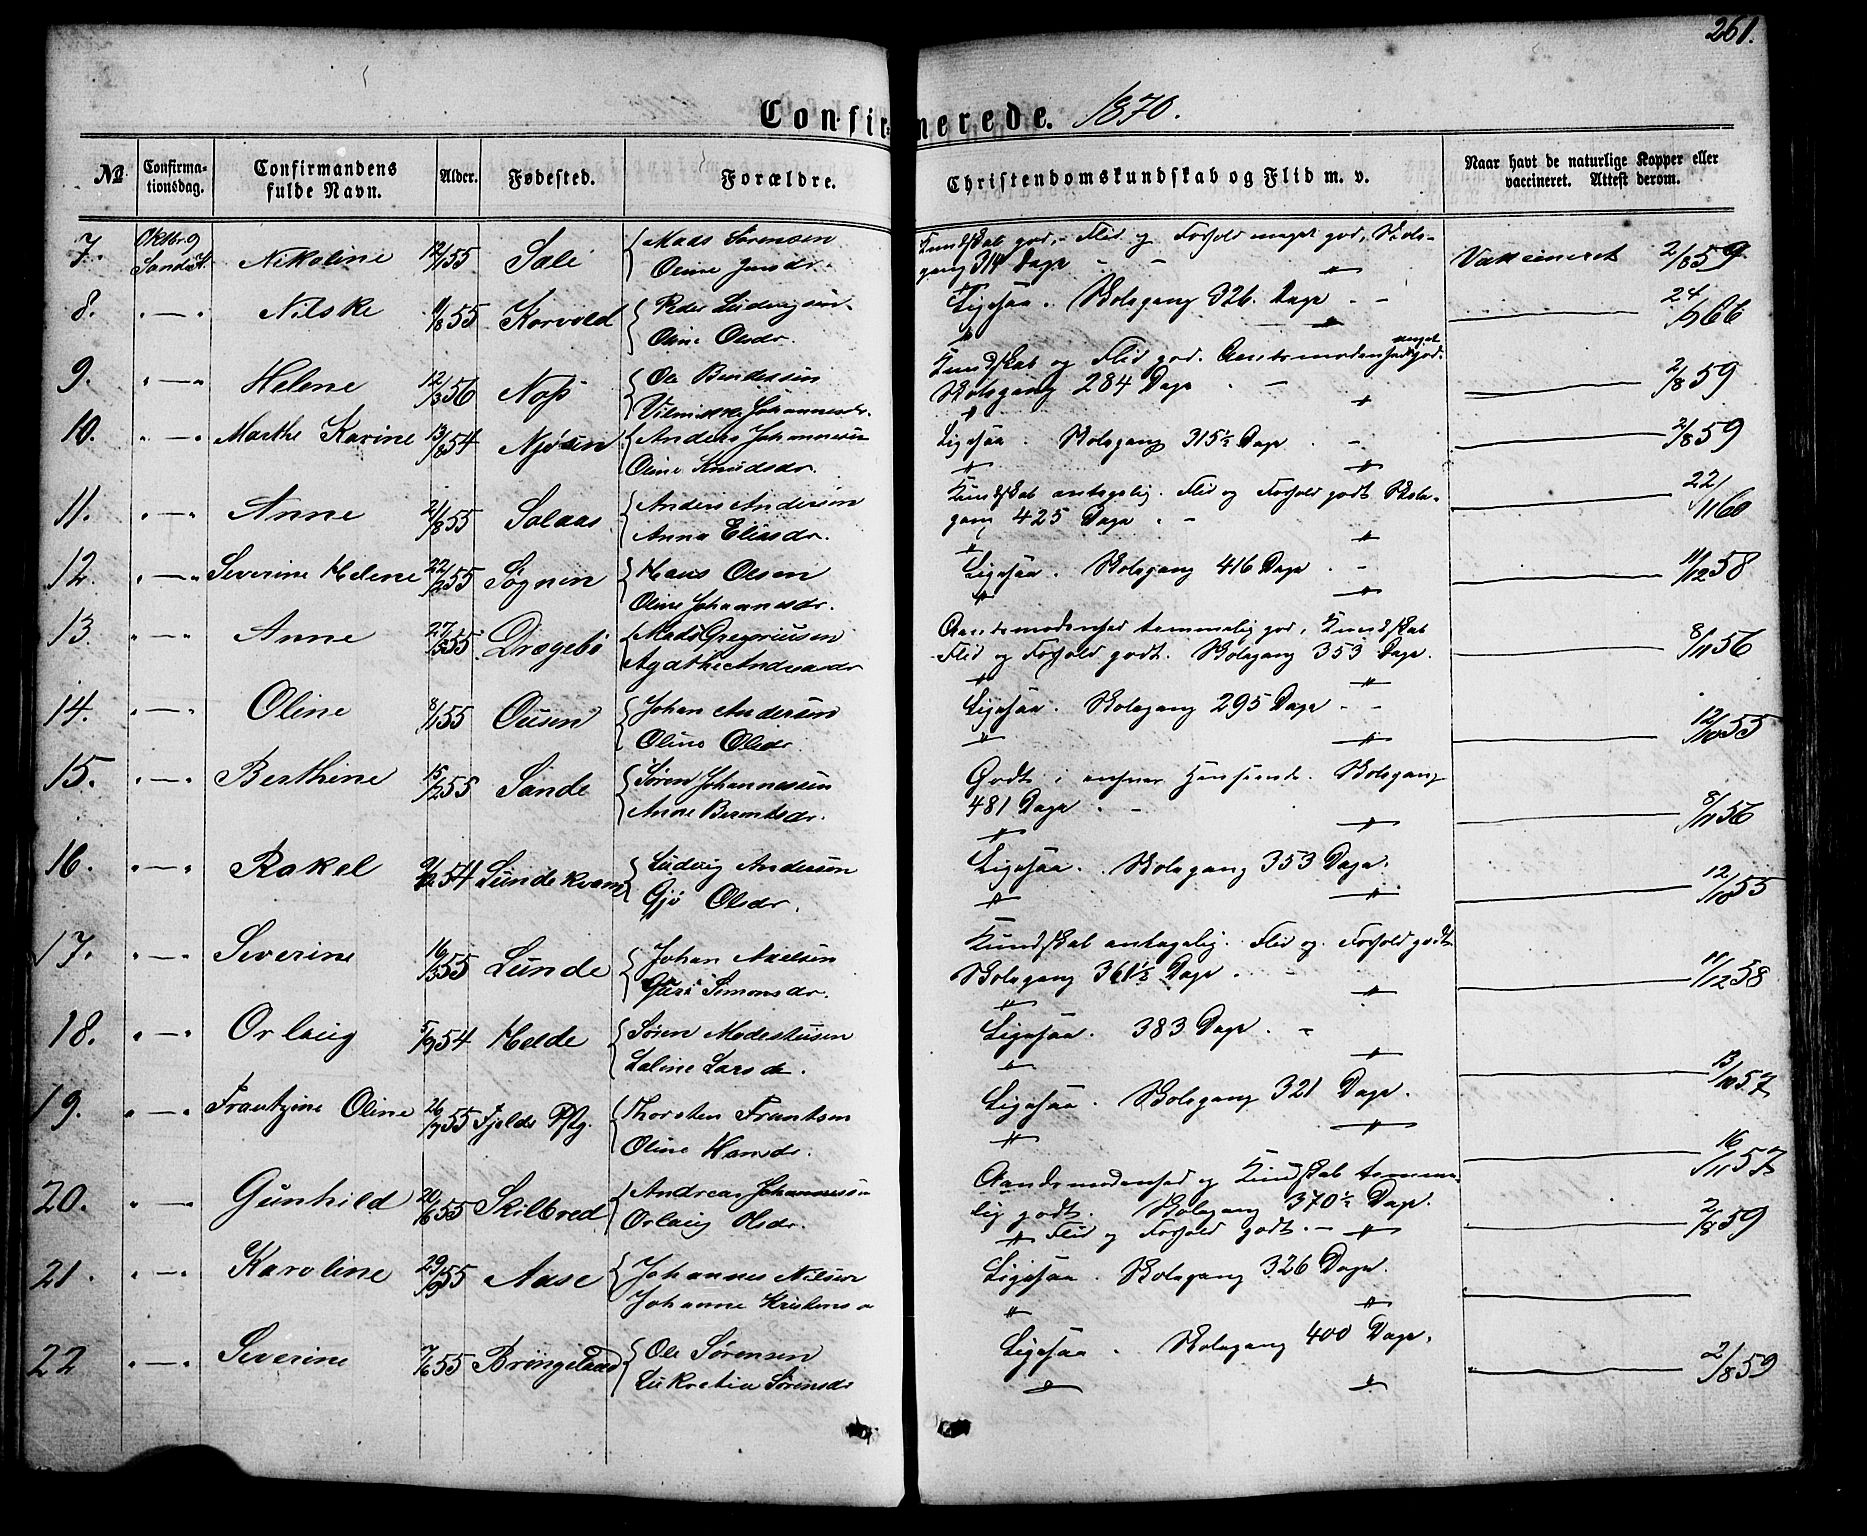 261.
Confirmerede. 1870.
№ Confirmationsdag. Confirmandens fulde Navn. Alder. Fødested. Forældre. Christendomskundskab og Flid m. v. Naar havt de naturlige Kopper eller vaccineret. Attest derom.
7. Oktbr. 9 Mads Sørensen Kundskab god, Flid og Forhold meget god, Skole-
Nikoline 12/1 55 Sale Oline gang 314 Dage - - Vaccineret 2/8 59
8. " — " Nilske 11/8 55 Korvold Peder Ludvigsen Ligesaa. Skolegang 326. Dage - - 24/7 66
Oline Olsdr.
9. " — " Helene 12/3 56 Ole Kundskab og Flid god. Aandsmodenhed meget god.
Johannesdr. Skolegang 284 Dage - - 2/8 59
10. " — " Marthe Karine 13/8 54 Njøsen Anders Johannesen Ligesaa. Skolegang 315½ Dage - 2/8 59
Oline Knudsdr.
11. " — " Anne 21/8 55 Solaas. Anders Andersen Kundskab antagelig. Flid og Forhold godt Skole-
Anna Eliasdr. gang 425 Dage - - 22/11 60
12. " — " Severine Helene 22/2 55 Sognen Hans Olsen Ligesaa. Skolegang 416 Dage - - 11/12 58
Oline Johannesdr.
13. " — " Anne 27/3 55 Dragebø Mads Gregoriusen Aandsmodenhed temmelig god, Kundskab
Agathe Andreasdr Flid og Forhold godt. Skolegang 353 Dage. 8/11 56
14. " — " Oline 8/1 55 Ousen Johan Andersen Ligesaa. Skolegang 295 Dage - - 12/10 55
Oline Olsdr.
15. " — " Berthine 15/2 55 Sande Søren Johannesen Godt i enhver Henseende. Skolegang
Anne Berntsdr. 481 Dage - - 8/11 56
16. " — " Rakel 9/12 54 Lundekvam Ludvig Andersen Ligesaa. Skolegang 353 Dage. 12/10 55
Gjø Olsdr.
17. " — " Severine 16/3 55 Lunde Johan Axelsen Kundskab antagelig. Flid og Forhold godt
Guri Simonsdr. Skolegang 361½ Dage. - 11/12 58
18. " — " Orlaug 5/9 54 Helde Søren Modestusen Ligesaa. 383 Dage. -
Larsdr. 13/10 57
19. " — " Frantzine Oline 26/7 55 Fjelds Pstg. Thorsten Frantsen Ligesaa. Skolegang 321 Dage.
Oline Hansdr. 16/11 57
20. " — " Gunhild 20/6 55 Skilbred Andreas Johannesen Aandsmodenhed og Kundskab temme-
Orlaug Olsdr. lig godt. Skolegang 370½ Dage.
Flid og Forhold godt. - 2/8 59
21. " — " Karoline 29/9 55 Aase Johannes Nilsen Ligesaa. Skolegang 326 Dage.
Johanne
22 " — " Severine 7/6 55 Bringeland Ole Sørensen Ligesaa. Skolegang 400 Dage.
Lukretia Sørensdr 2/8 59